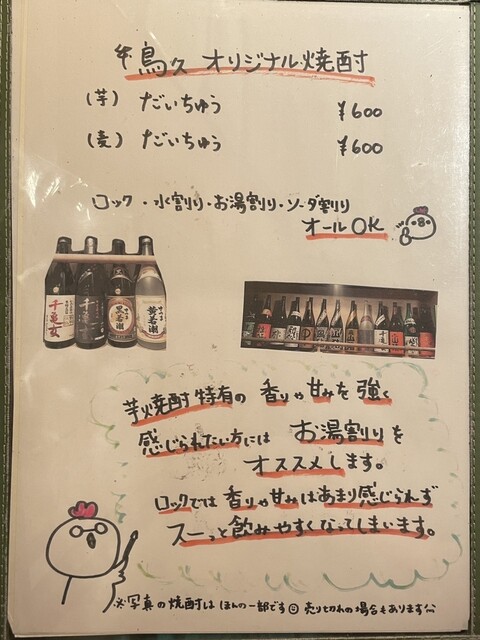 鳥久 オリジナル焼酎
(芋) だいちゅう ¥600
(麦) だいちゅう ¥600
ロック・水割り・お湯割り・ソーダ割り
オールOK
千亀女
黒若潮
黄若潮
芋焼酎特有の 香りや甘みを 強く
感じられたい方には お湯割りを
オススメします。
ロックでは 香りや甘みはあまり感じられず
スーっと飲みやすくなってしまいます。
※写真の焼酎は ほんの一部です 売り切れの場合もあります